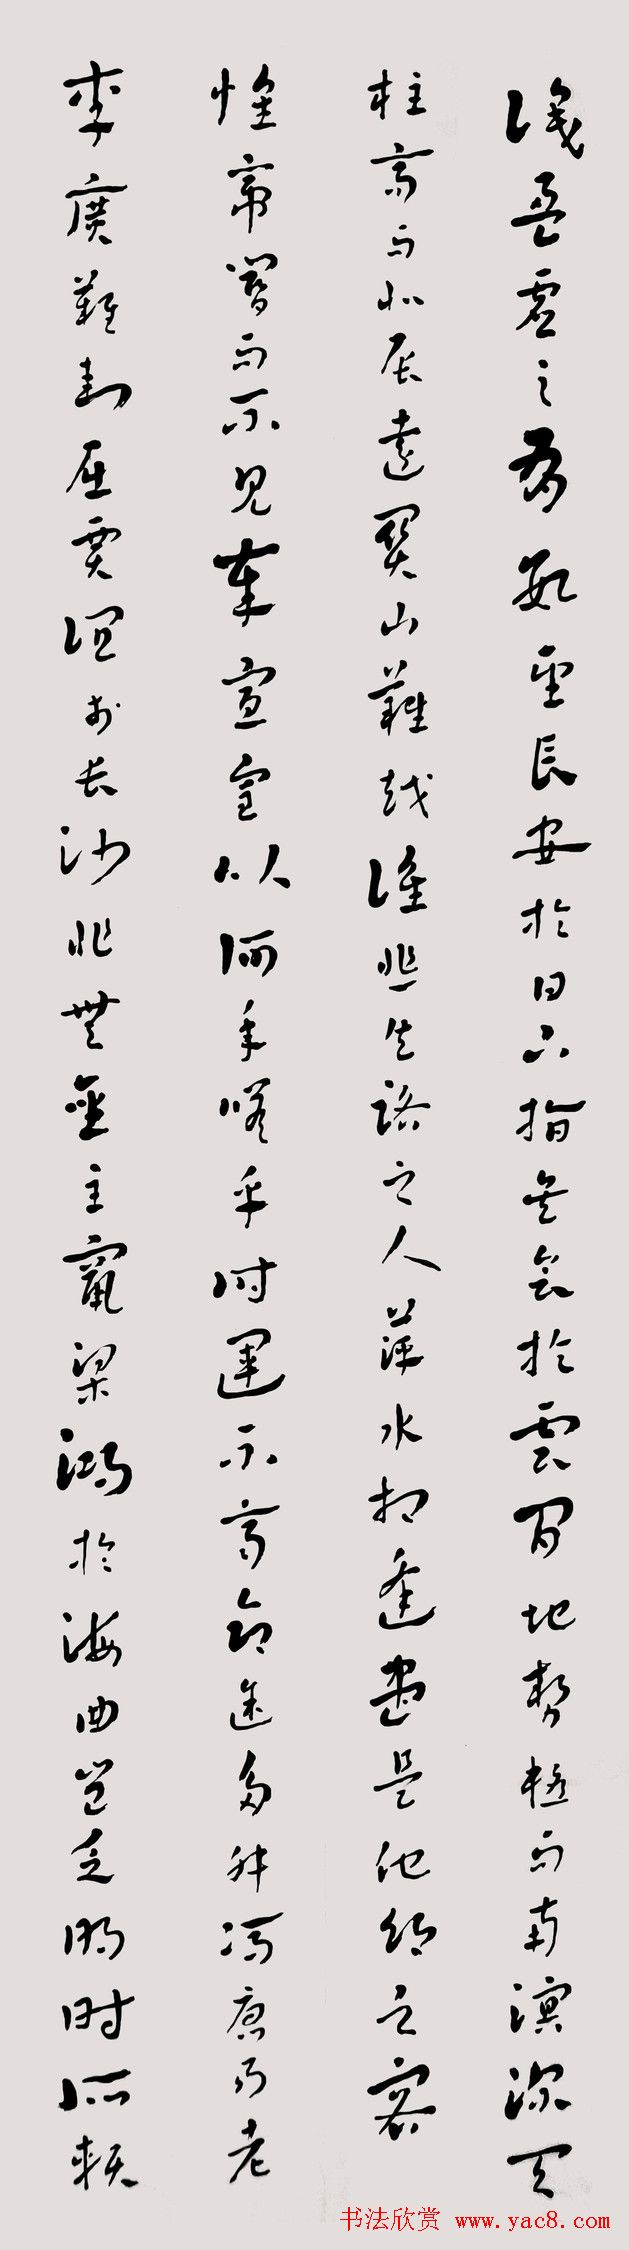 識盈虛之有數望長安於日下指吳會於雲間地勢極而南溟深天
柱高而北辰遠關山難越誰悲失路之人萍水相逢盡是他鄉之客
懷帝閽而不見奉宣室以何年嗟乎時運不齊命途多舛馮唐易老
李廣難封屈賈誼於長沙非無聖主竄梁鴻於海曲豈乏明時所賴
书法欣赏 www.yac8.com